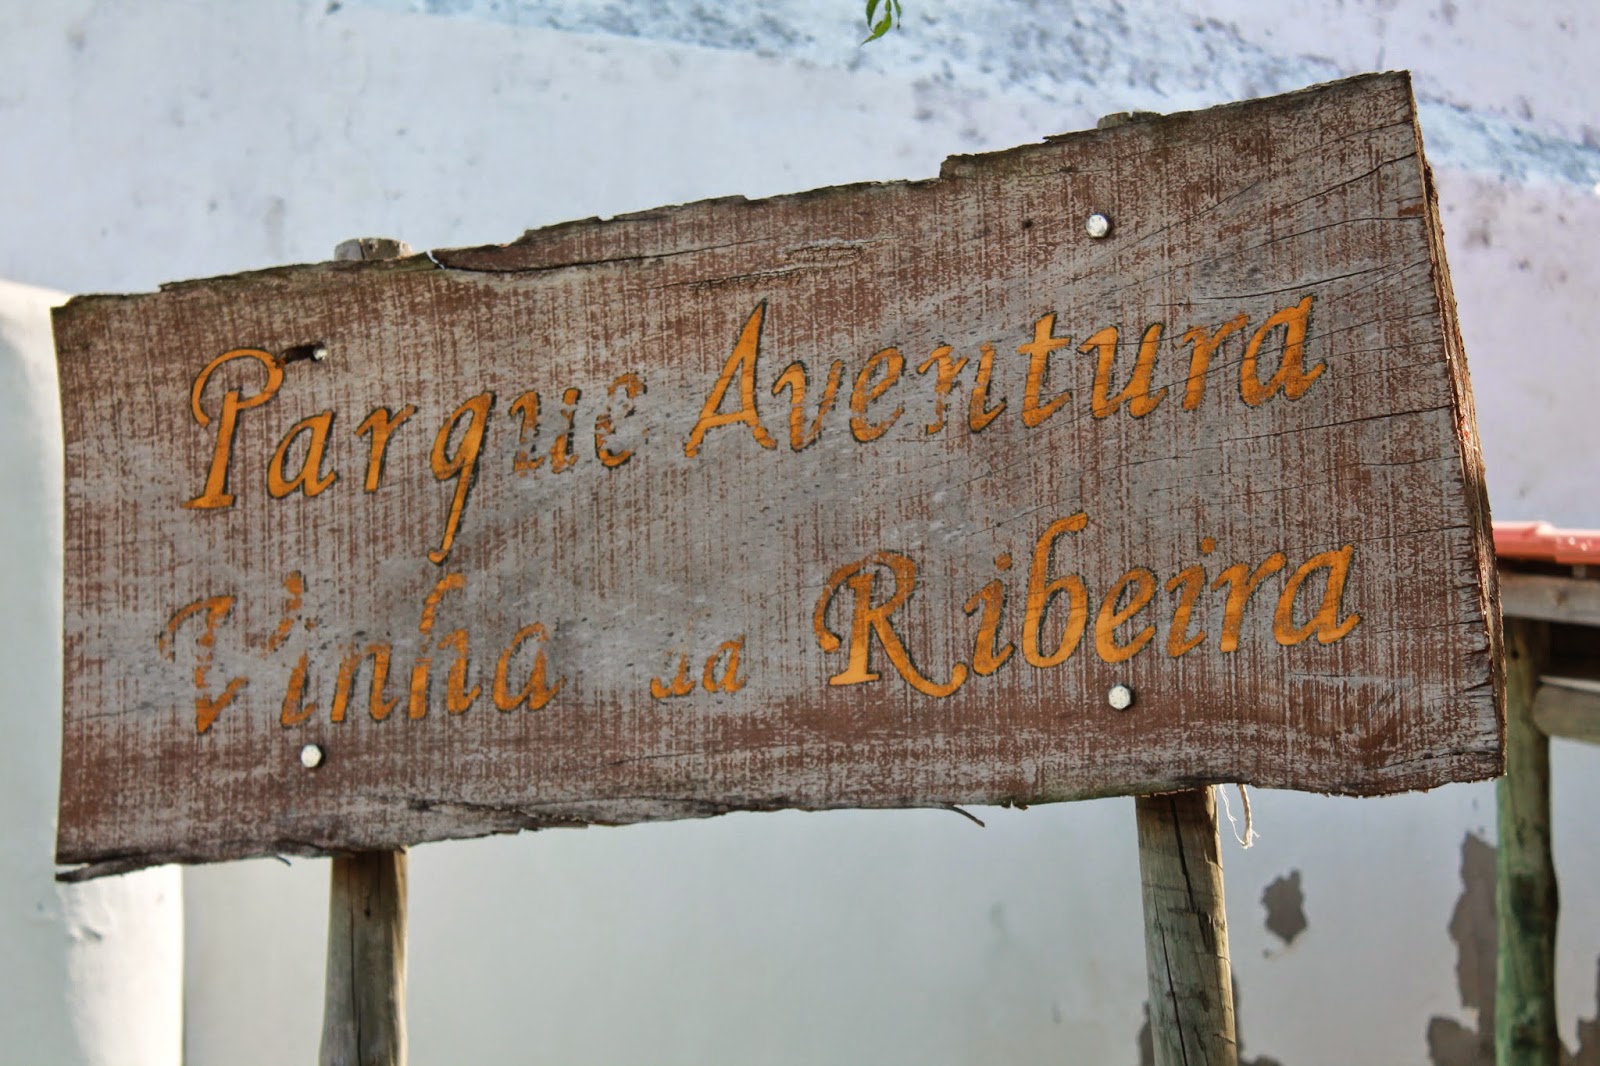 Parque Aventura
Vinha da Ribeira